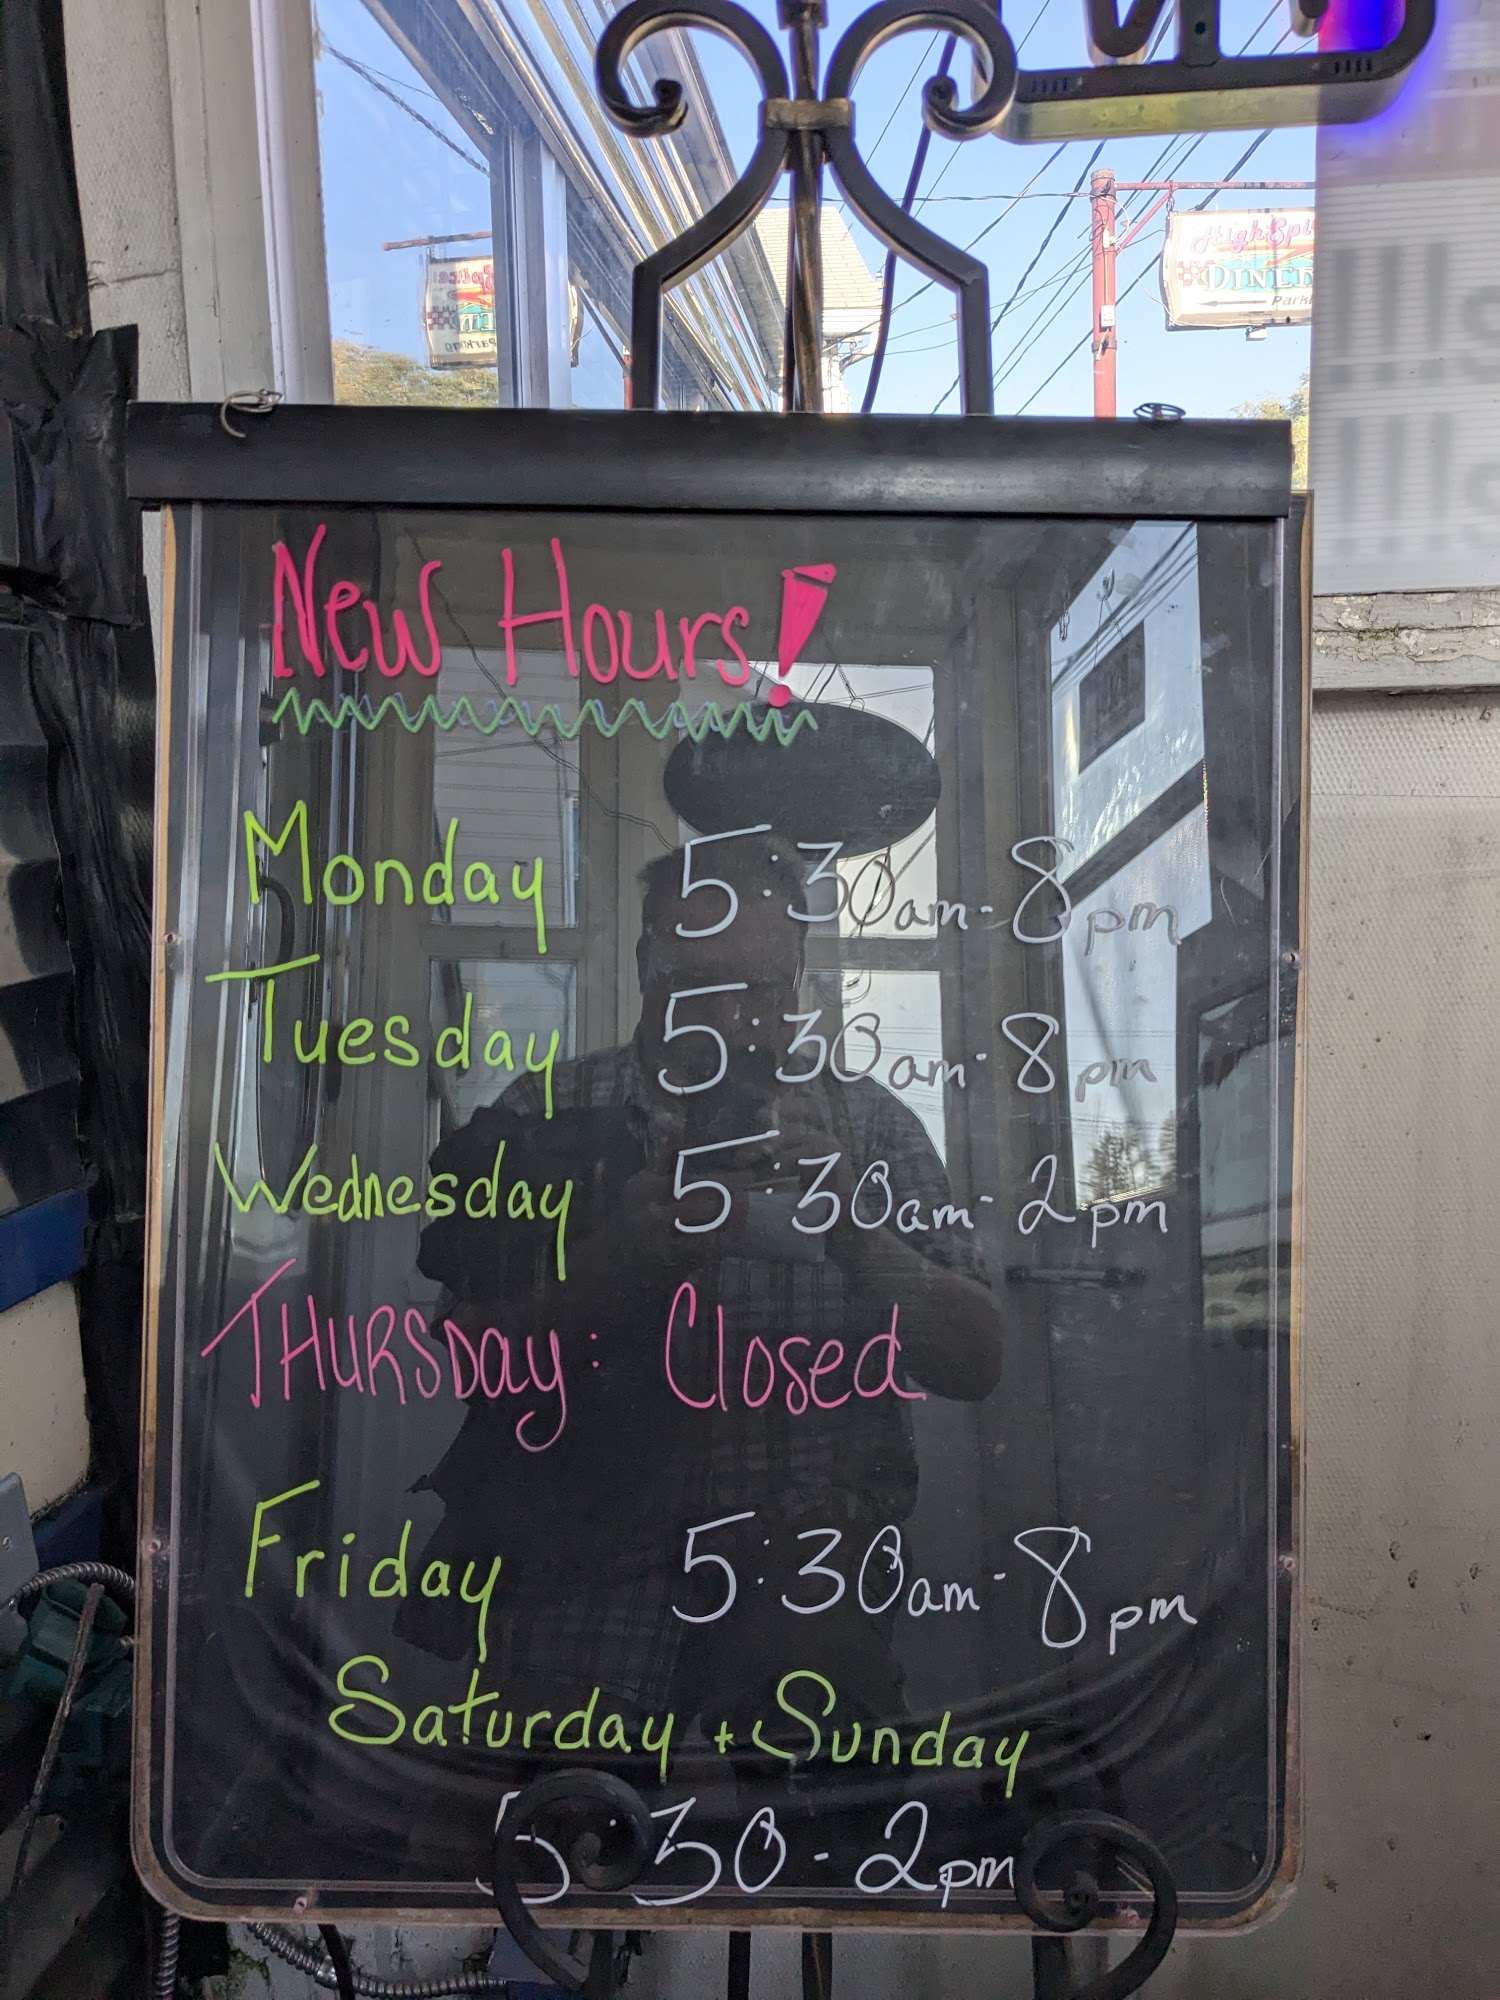 High Spi
DINER
Parki
New Hours!
Monday 5:30am-8pm
Tuesday 5:30am-8pm
Wednesday 5:30am-2pm
THURSDAY: Closed
Friday 5:30am-8pm
Saturday + Sunday
5:30-2pm